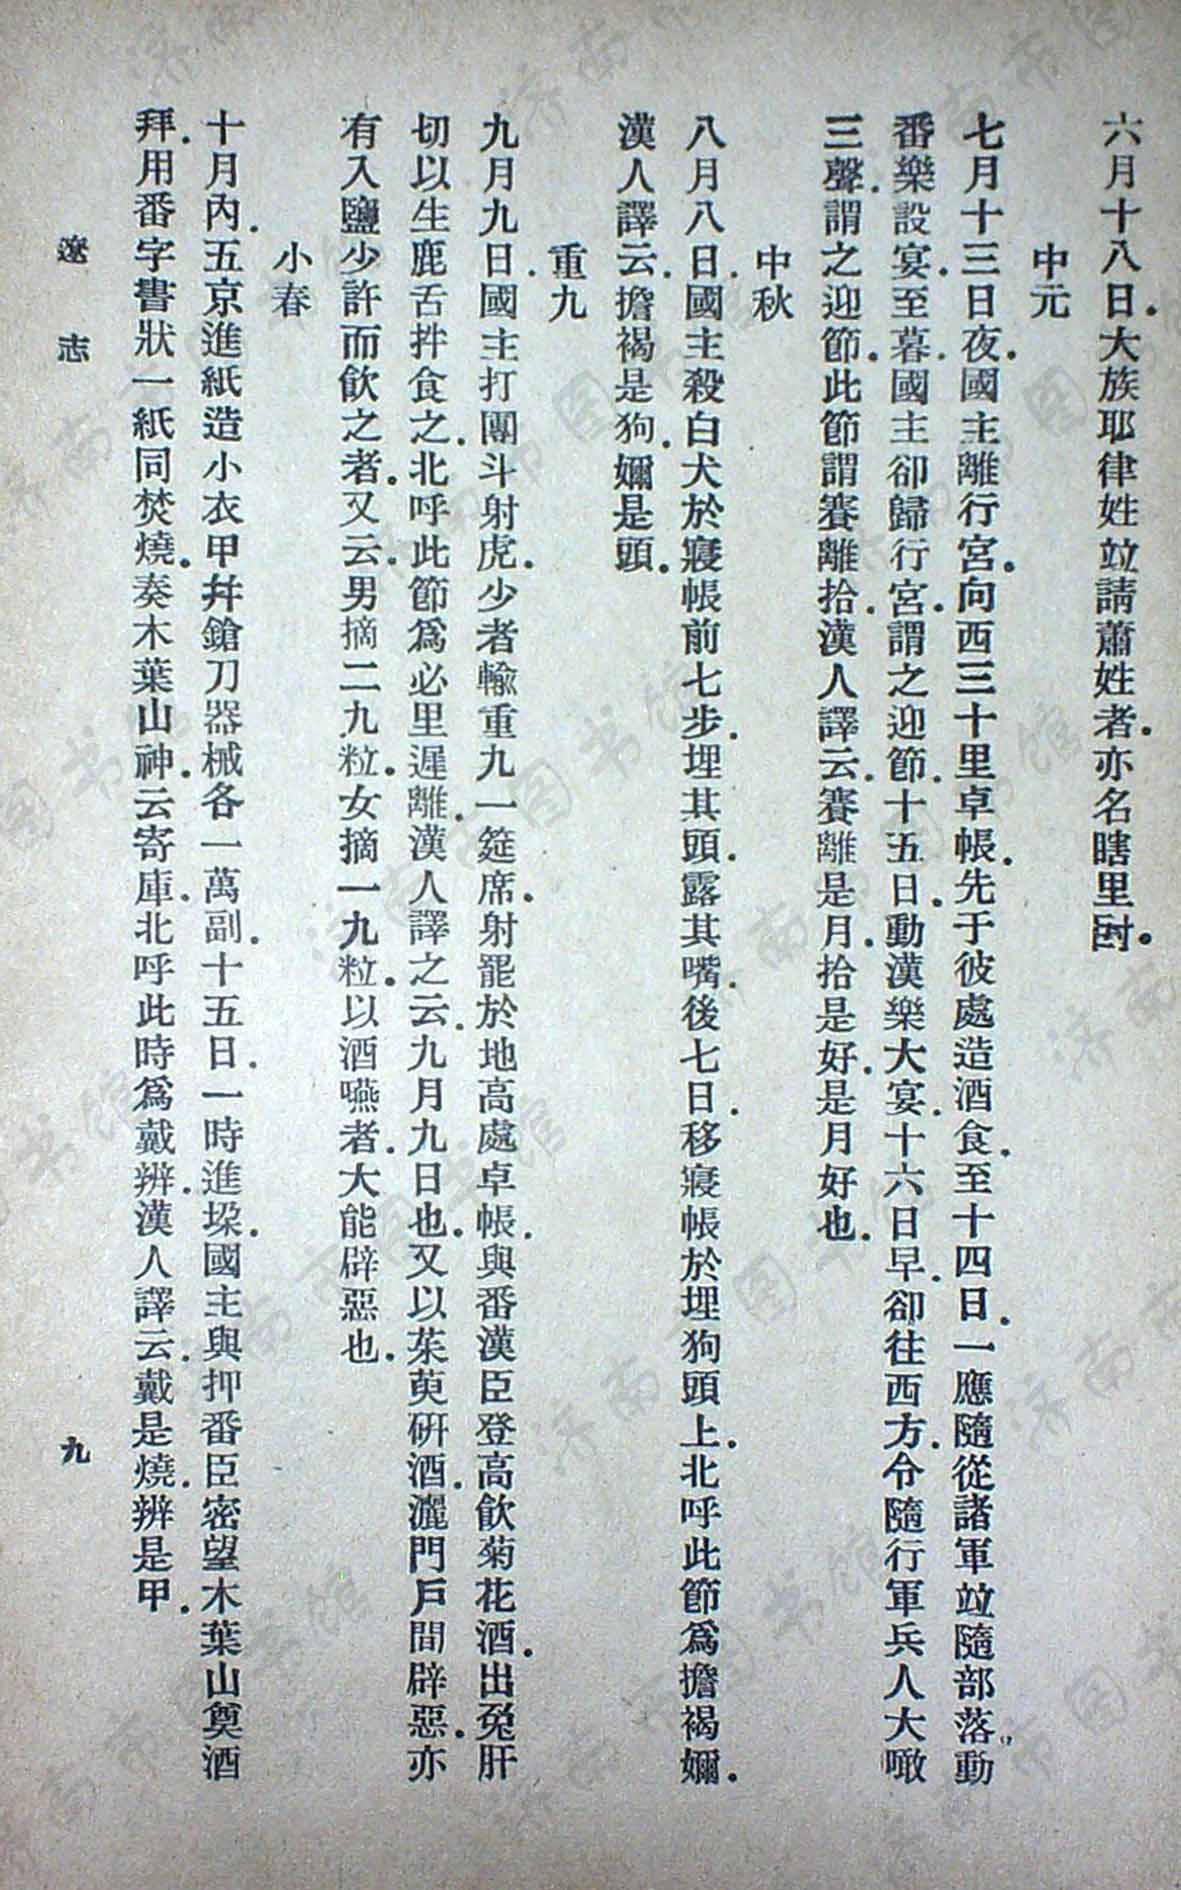 六月十八日.大族耶律姓竝請蕭姓者.亦名瞎里尀.
中元
七月十三日夜.國主離行宮.向西三十里卓帳.先于彼處造酒食.至十四日.一應隨從諸軍竝隨部落.動
番樂設宴.至暮.國主卻歸行宮.謂之迎節.十五日.動漢樂大宴.十六日早.卻往西方.令隨行軍兵人大噉
三聲.謂之迎節.此節謂賽離拾.漢人譯云.賽離是月.拾是好.是月好也.
中秋
八月八日.國主殺白犬於寢帳前七步.埋其頭.露其嘴.後七日.移寢帳於埋狗頭上.北呼此節爲擔褐嬭.
漢人譯云.擔褐是狗.嬭是頭.
重九
九月九日.國主打團斗射虎.少者輸重九一筵席.射罷於地高處卓帳.與番漢臣登高飲菊花酒.出兔肝
切以生鹿舌拌食之.北呼此節爲必里遲離.漢人譯之云.九月九日也.又以茱萸研酒.灑門戶間辟惡.亦
有入鹽少許而飲之者.又云.男摘二九粒.女摘一九粒.以酒嚥者.大能辟惡也.
小春
十月內.五京進紙造小衣甲幷鎗刀器械各一萬副.十五日.一時進垜.國主與押番臣密望木葉山奠酒
拜.用番字書狀一紙同焚燒.奏木葉山神.云寄庫.北呼此時爲戴辨.漢人譯云.戴是燒.辨是甲.
遼志
九
济南市图书馆